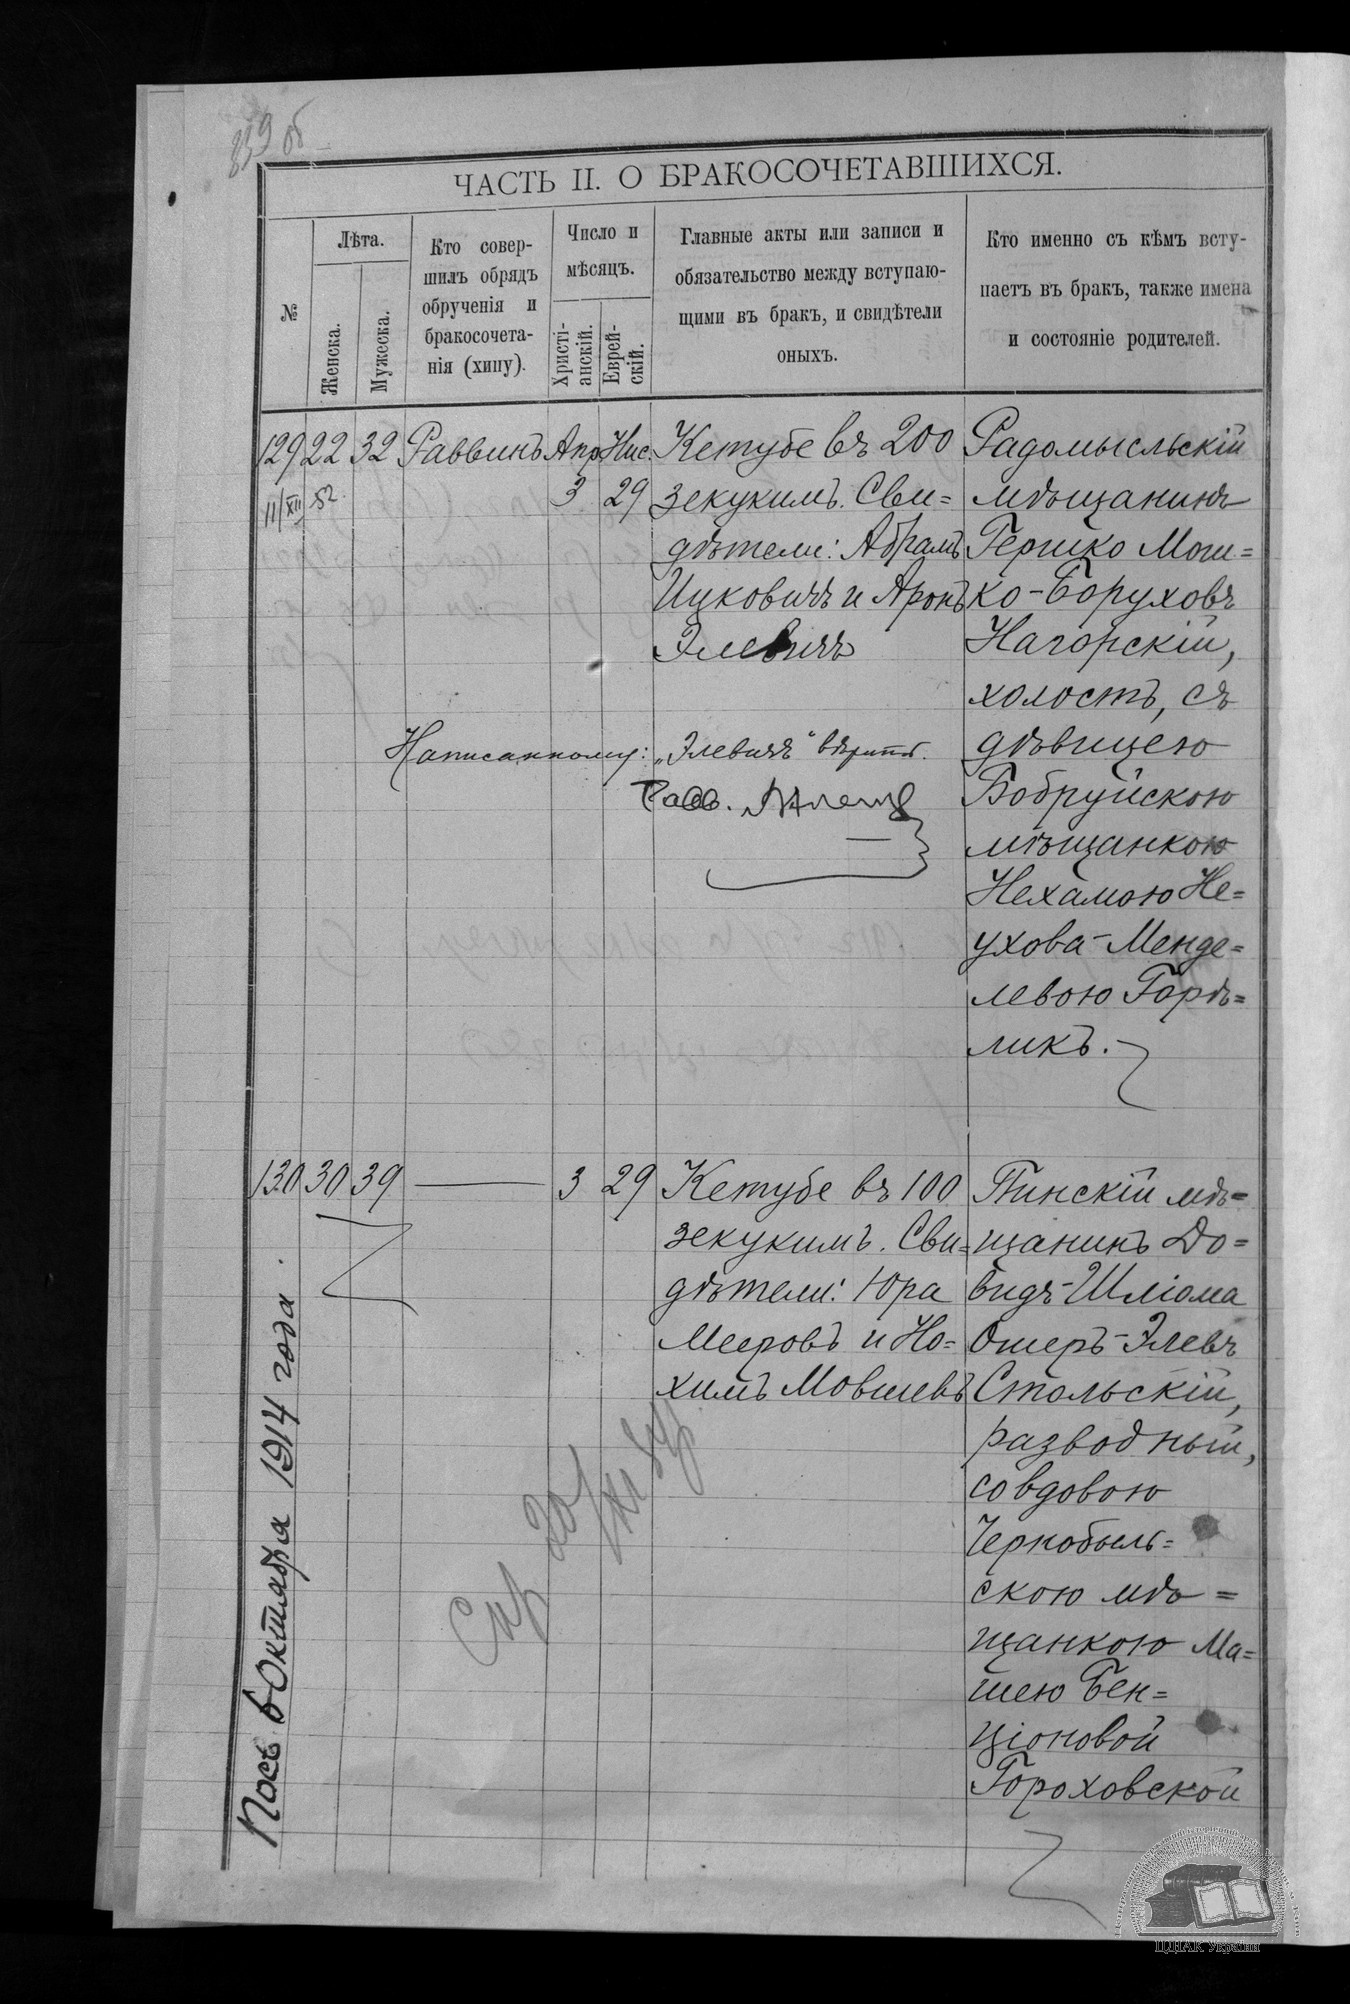 339 об
ЧАСТЬ II. О БРАКОСОЧЕТАВШИХСЯ.
№
Лѣта.
Женска.
Мужеска.
Кто совер-
шилъ обрядъ
обрученія и
бракосочета-
нія (хипу).
Число и
мѣсяцъ.
Христі-
анскій.
Еврей-
скій.
Главные акты или записи и
обязательство между вступаю-
щими въ бракъ, и свидѣтели
оныхъ.
Кто именно съ кѣмъ всту-
паетъ въ бракъ, также имена
и состояніе родителей.
129 22 32 Раввинъ Апр. Нис.
3 29
11/XII 52
Кетубе въ 200
зекукимъ. Сви=
дѣтели: Абрамъ
Ицковичъ и Аронъ
Элевичъ
Написанному: „Элевичъ“ вѣрить.
Равв.
Радомысльскій
мѣщанинъ
Гершко Мош=
ко-Боруховъ
Нагорскій,
холостъ, съ
дѣвицею
Бобруйскою
мѣщанкою
Нехамою Не=
ухова-Менде=
левою Горѣ=
ликъ.
130 30 39 — 3 29
Кетубе въ 100
зекукимъ. Сви=
дѣтели: Юра
Мееровъ и Но=
химъ Мовшевъ
Пинскій мѣ=
щанинъ До=
видъ-Шліома
Ошеръ-Элевъ
Стольскій,
разводный,
со вдовою
Чернобыль=
скою мѣ=
щанкою Ма=
шею Бен=
ціоновой
Гороховской
Посв. в Октября 1914 года.
ЦДІАК України